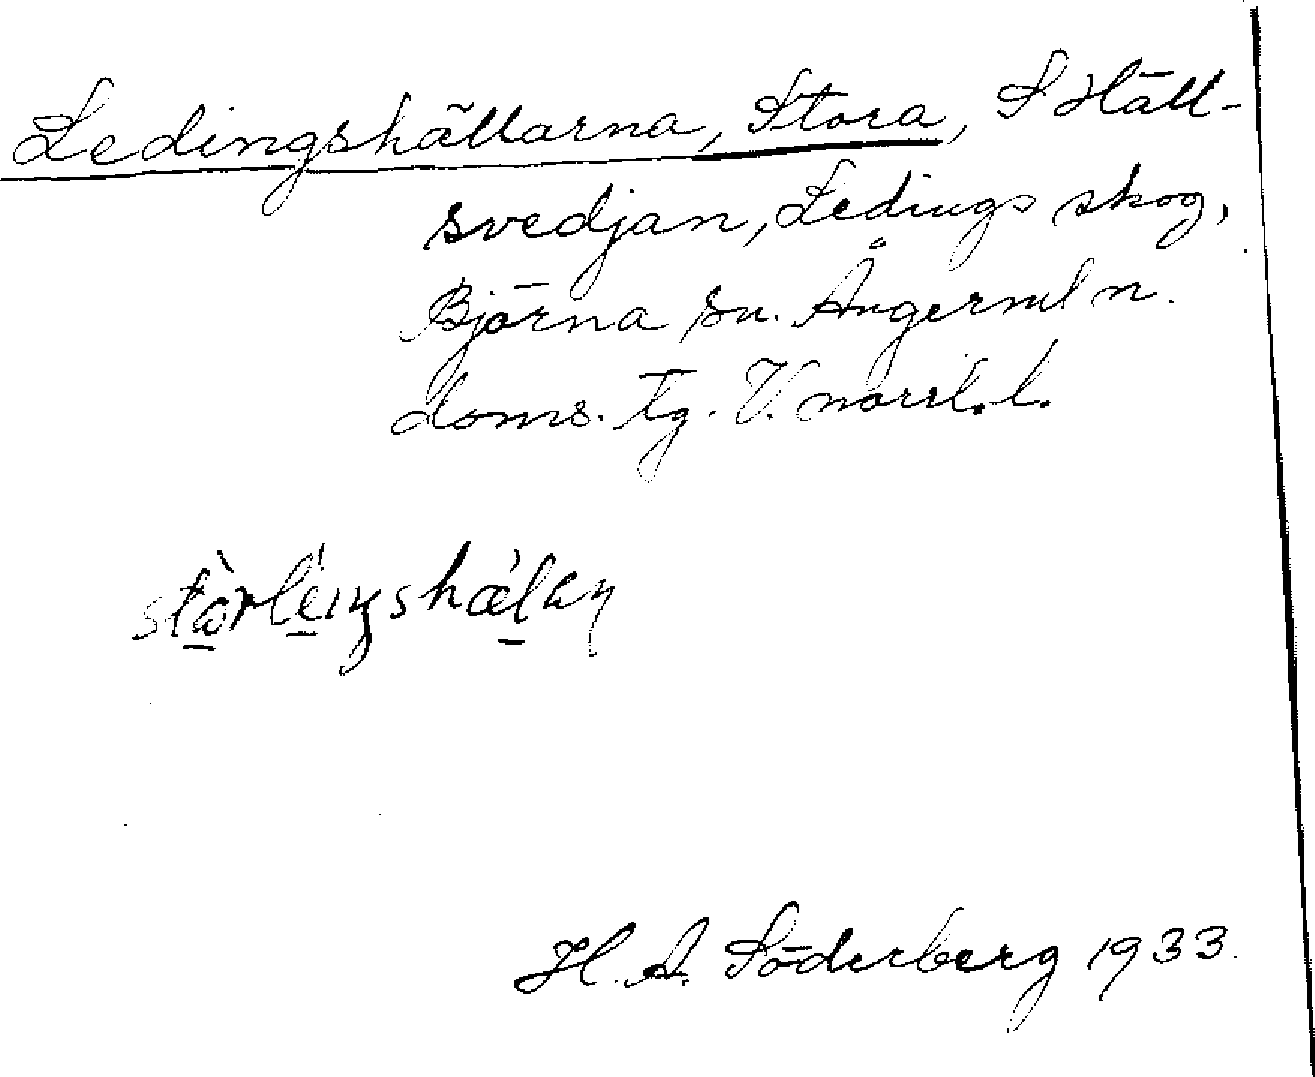 Ledingshällarna, Stora, S Häll-
svedjan, Ledings skog,
Björna sn. Ångerml n.
doms. tg. V. norrl. l.
H. A. Söderberg 1933.